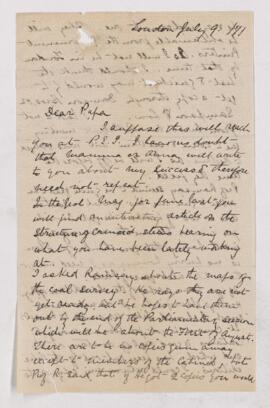 London July 9th /71
Dear Papa
I suppose this will reach
you at P.E.I. I have no doubt
that mamma or Anna will write
to you about my success & therefore
need not repeat.
In the Geol. Mag. for June last you
will find an interesting article on the
structure of
what you have been lately working
at.
I asked Ramsay about the maps for
the coal survey. He says they are not
yet ready but he hopes to have them
out by the end of the Parliamentary session
which will be about the First of August.
There are to be no copies given away
except to members of the Cabinet, but
R. said that if he got 2 copies you would